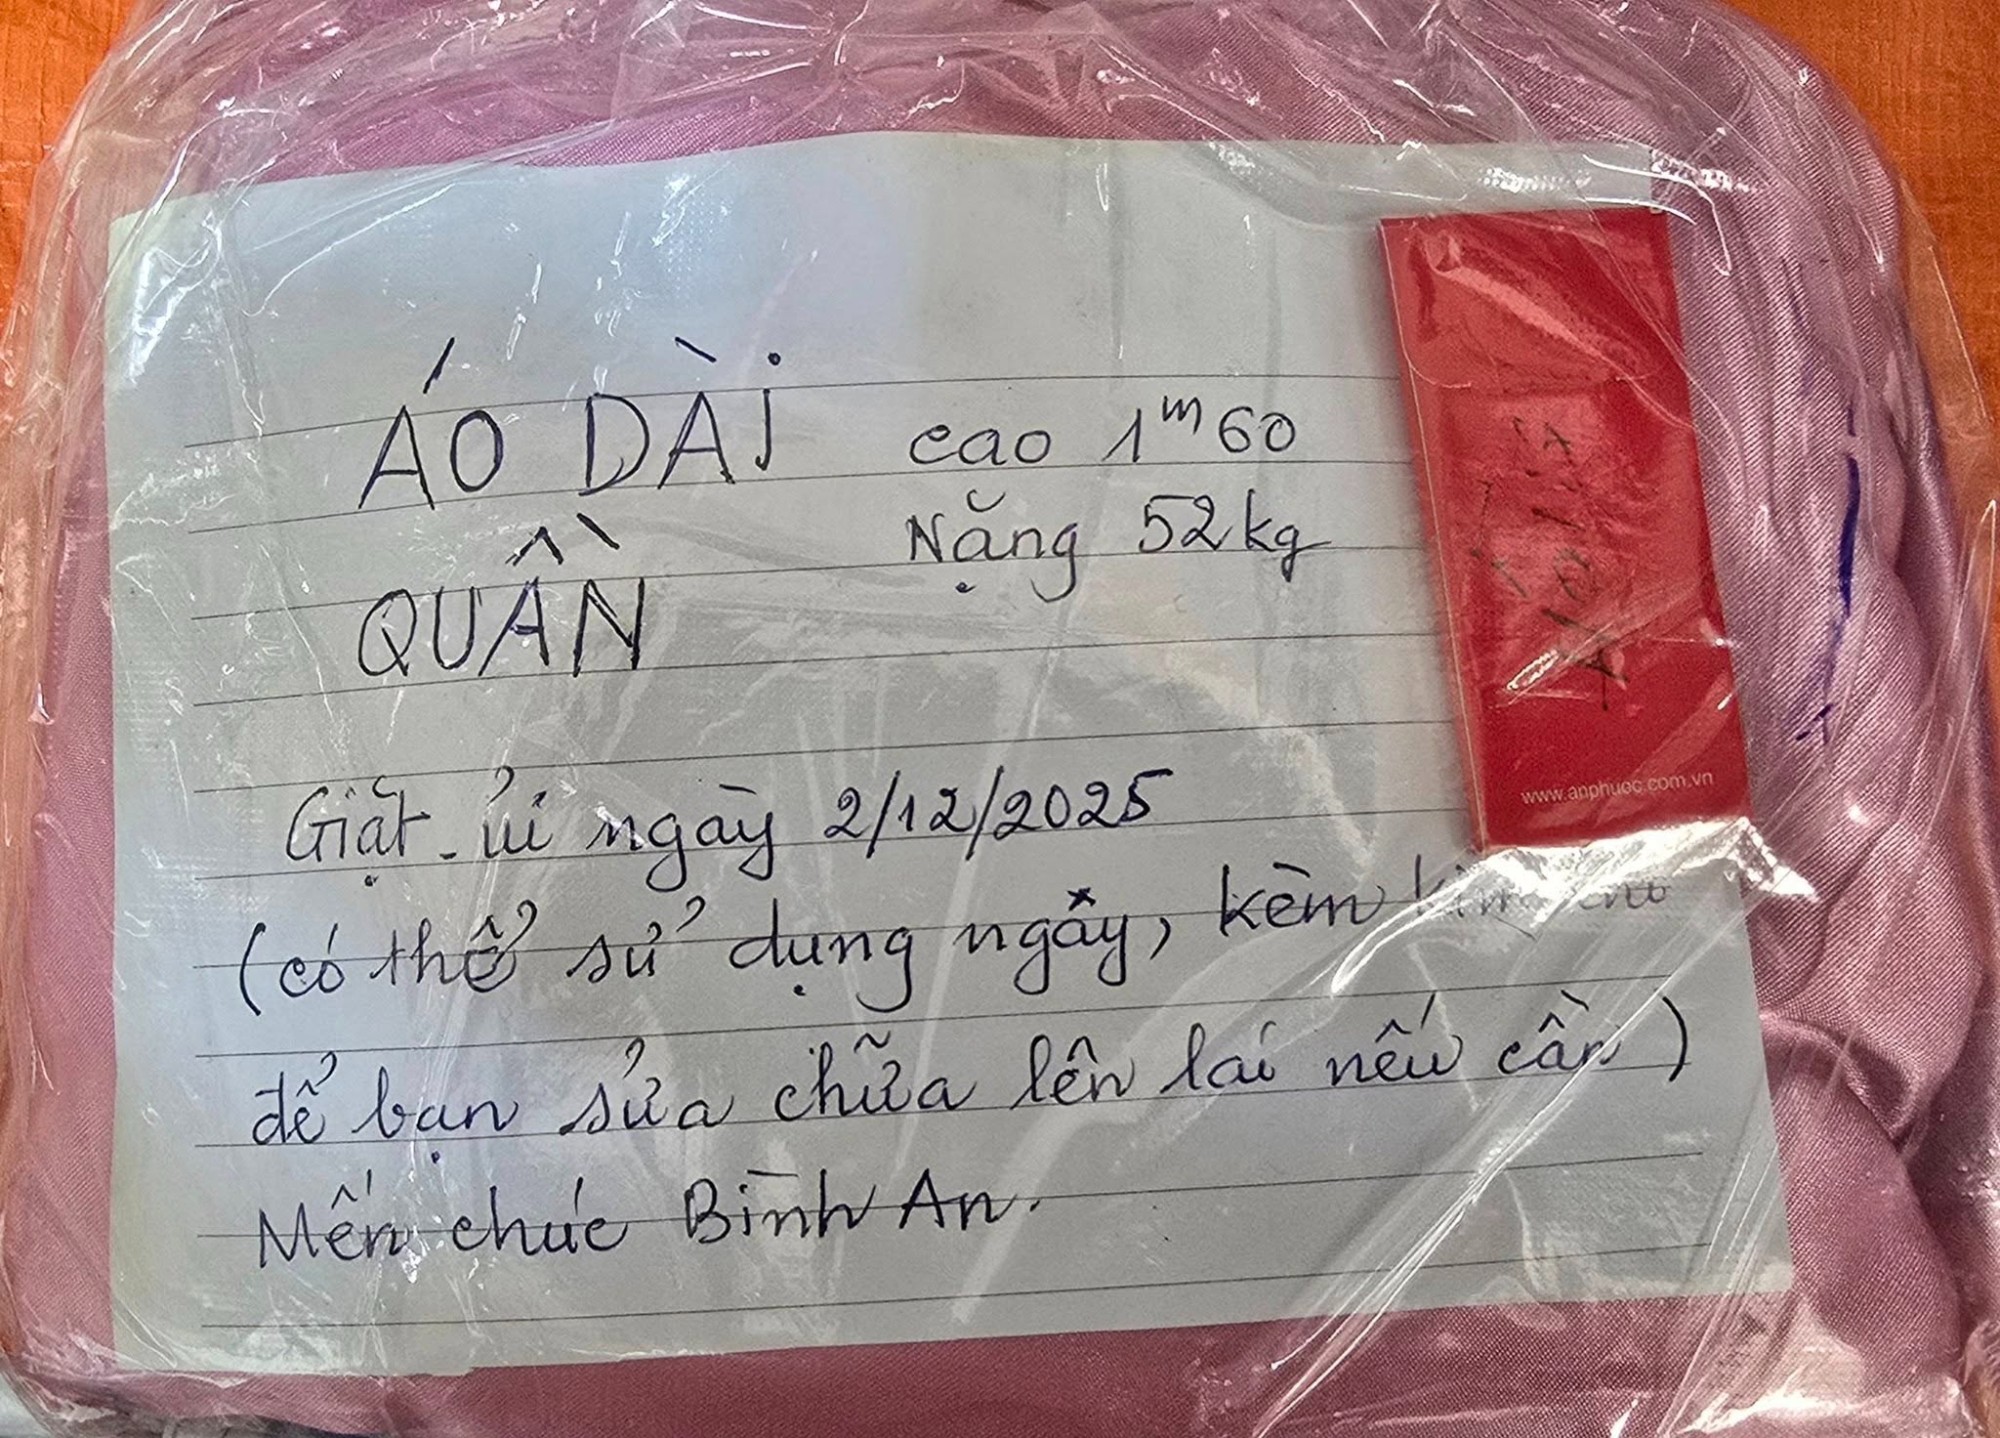 ÁO DÀI cao 1m60
QUẦN Nặng 52kg
Giặt - ủi ngày 2/12/2025
(có thể sử dụng ngay, kèm kim chỉ
để bạn sửa chữa lên lai nếu cần)
Mến chúc Bình An.
www.anphuoc.com.vn